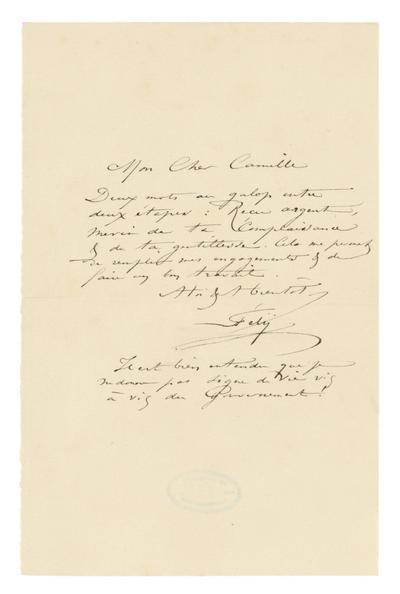 Mon Cher Camille
Deux mots au galop entre
deux étapes : Recu argent,
merci de ta Complaisance
& de ta gentillesse. Cela me permet
de remplir mes engagements & de
faire un bon travail.
A toi & A bientot
Fély
Il est bien entendu que je
ne donne pas signe de vie vis
à vis du Gouvernement !